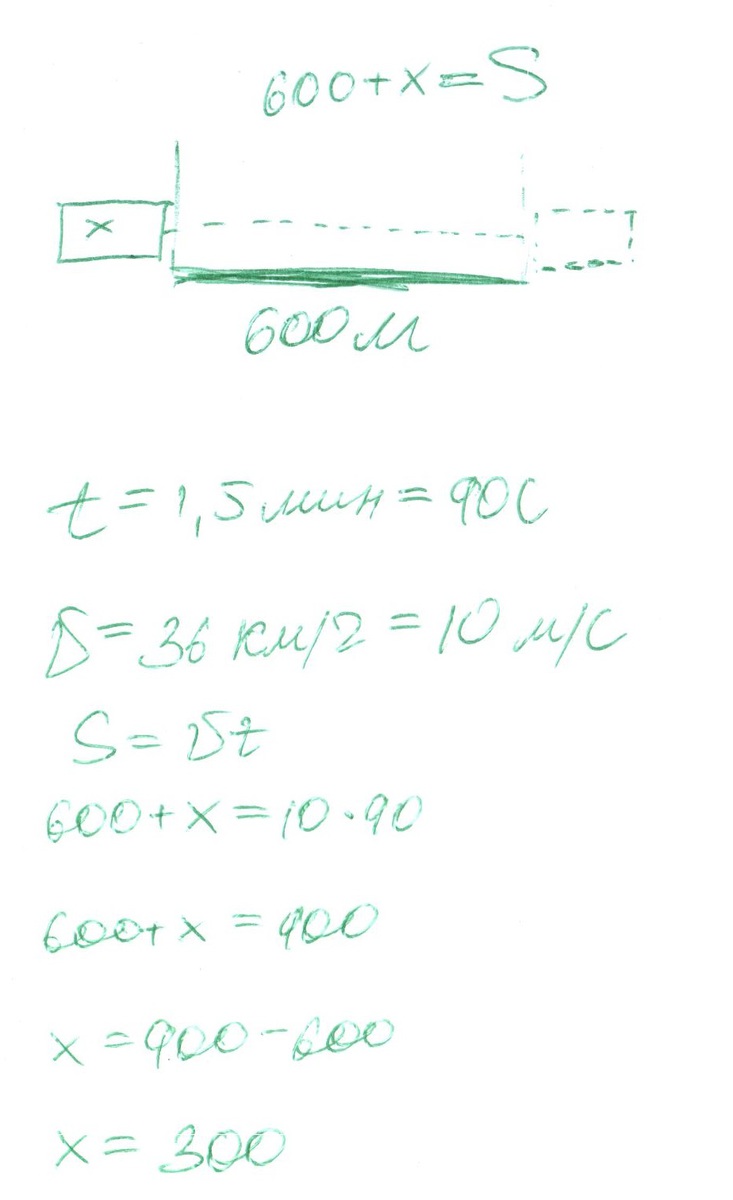 600+x=S
x
600м
t=1,5мин=90с
υ=36 км/ч=10 м/с
S=υt
600+x=10·90
600+x=900
x=900-600
x=300